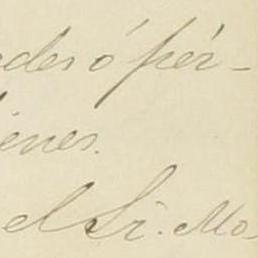 ades ó pér-
ienes.
el Sr. Mo-